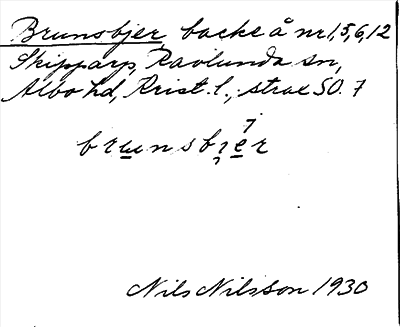 Brunsbjer, backe å nr 1,5,6,12
Skipparp, Ravlunda sn,
Albo hd, Krist. l., strax SO. 7
7
brunsbıer
Nils Nilsson 1930